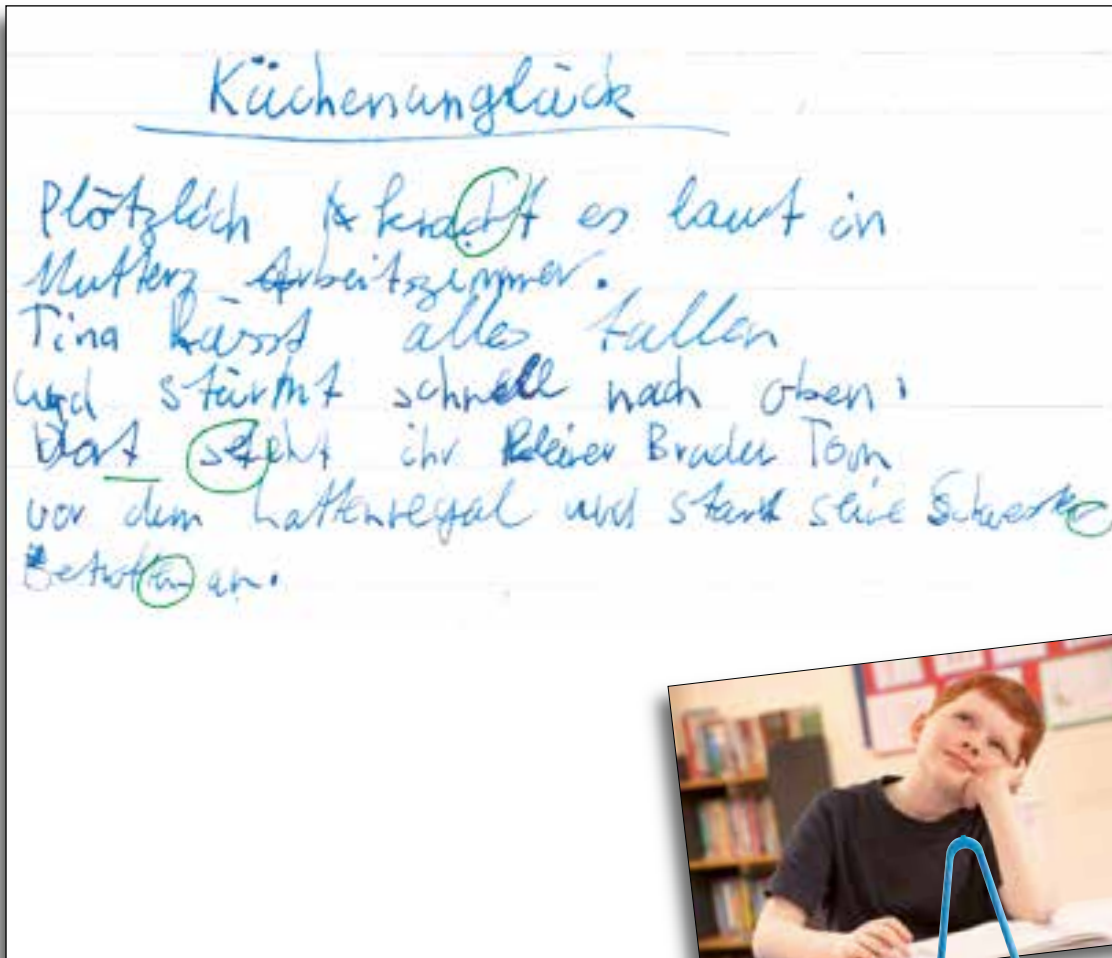 Küchenunglück
Plötzlich kracht es laut in
Mutters Arbeitszimmer.
Tina lässt alles fallen
und stürmt schnell nach oben.
Dort steht ihr kleiner Bruder Tom
vor dem und starrt seine
an.